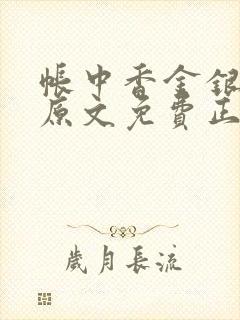 帳中香金銀
原文免費正
歲月長流